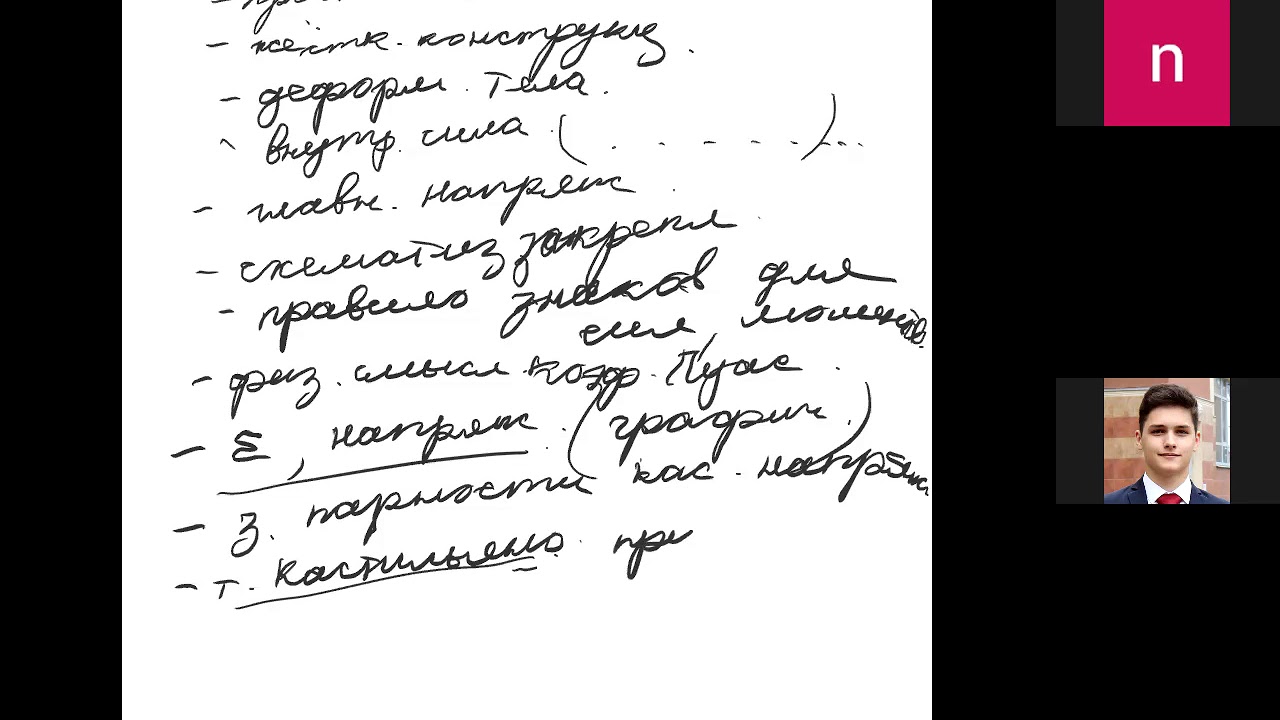 - жёстк. конструкц.
- деформ. тела.
- внутр. сила (. . - - - - -)...
- главн. напряж.
- схематиз закрепл.
- правило знаков для
сил, моментов.
- физ. смысл коэф. Пуас.
- Σ, напряж. (график)
- З. парности кас. напряж
- т. Кастильяно. при
n